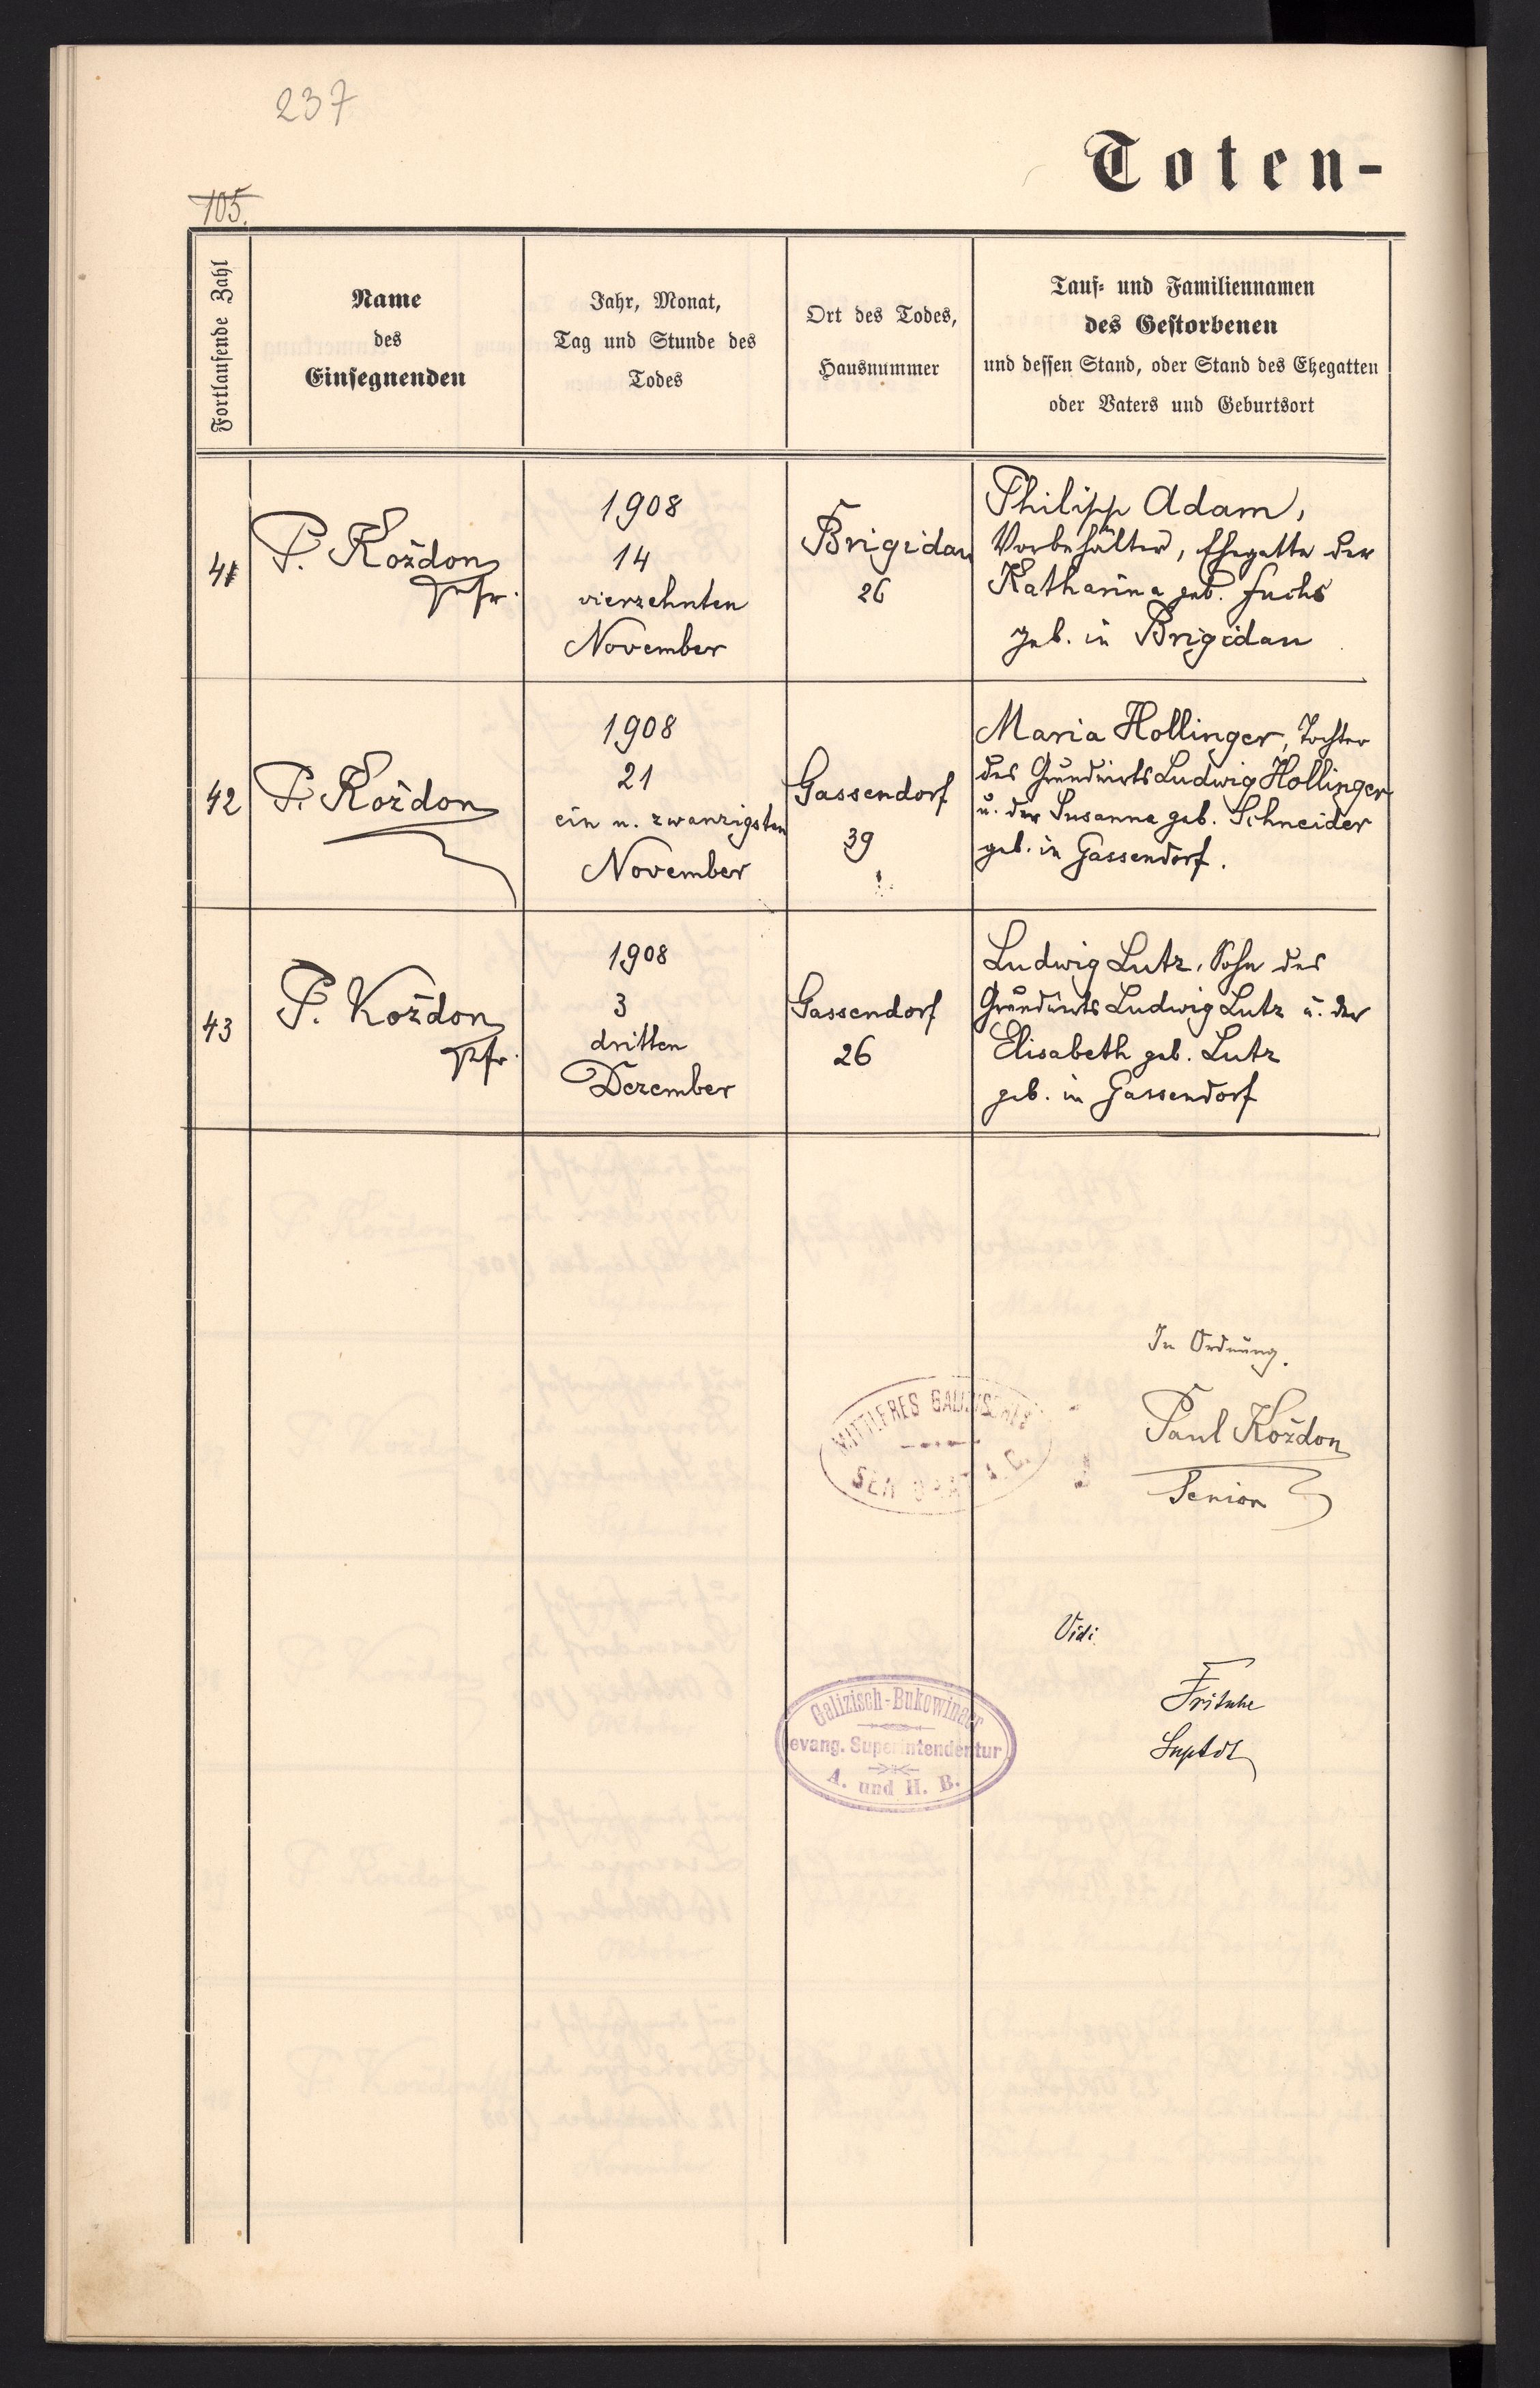 237
105.
Toten-
Fortlaufende Zahl
Name
des
Einsegnenden
Jahr, Monat,
Tag und Stunde des
Todes
Ort des Todes,
Hausnummer
Tauf- und Familiennamen
des Gestorbenen
und dessen Stand, oder Stand des Ehegatten
oder Vaters und Geburtsort
41
P. Koždon
Pfr.
1908
14
vierzehnten
November
Brigidau
26
Philipp Adam,
Vorbehälter, Ehegatte der
Katharina geb. Fuchs
geb. in Brigidau
42
P. Koždon
1908
21
ein u. zwanzigsten
November
Gassendorf
39
Maria Hollinger, Tochter
des Grundwirts Ludwig Hollinger
u. der Susanna geb. Schneider
geb. in Gassendorf.
43
P. Koždon
Pfr.
1908
3
dritten
Dezember
Gassendorf
26
Ludwig Lutz, Sohn des
Grundwirts Ludwig Lutz u. der
Elisabeth geb. Lutz
geb. in Gassendorf
In Ordnung.
MITTLERES GALIZISCHES
Paul Koždon
Senior
Vidi
Fritsche
Suptdt
Galizisch-Bukowinaer
evang. Superintendentur
A. und H. B.